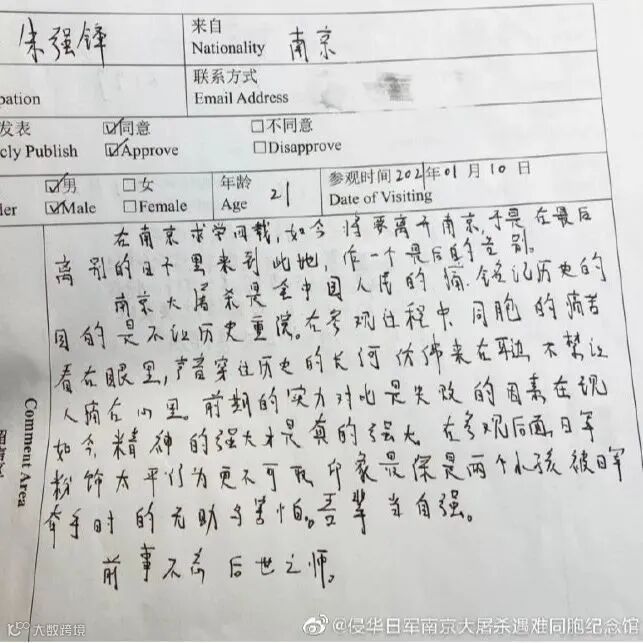 朱强锋
来自
Nationality 南京
联系方式
pation Email Address
发表 ☑同意 □不同意
cly Publish ☑Approve □Disapprove
☑男 □女 年龄 21 参观时间 2021年01月10日
der ☑Male □Female Age Date of Visiting
Comment Area
在南京求学四载,如今将要离开南京,于是在最后
离别的日子里来到此地,作一个最后的告别。
南京大屠杀是全中国人民的痛,铭记历史的
目的是不让历史重演。在参观过程中,同胞的痛苦
看在眼里,声音穿过历史的长河仿佛来在耳边,不禁让
人痛在心里。前期的实力对比是失败的因素,在现
如今,精神的强大才是真的强大。在参观后面,日军
粉饰太平行为更不可取,印象最深是两个小孩被日军
牵手时的无助与害怕。吾辈当自强。
前事不忘 后世之师。
大数跨境
@侵华日军南京大屠杀遇难同胞纪念馆